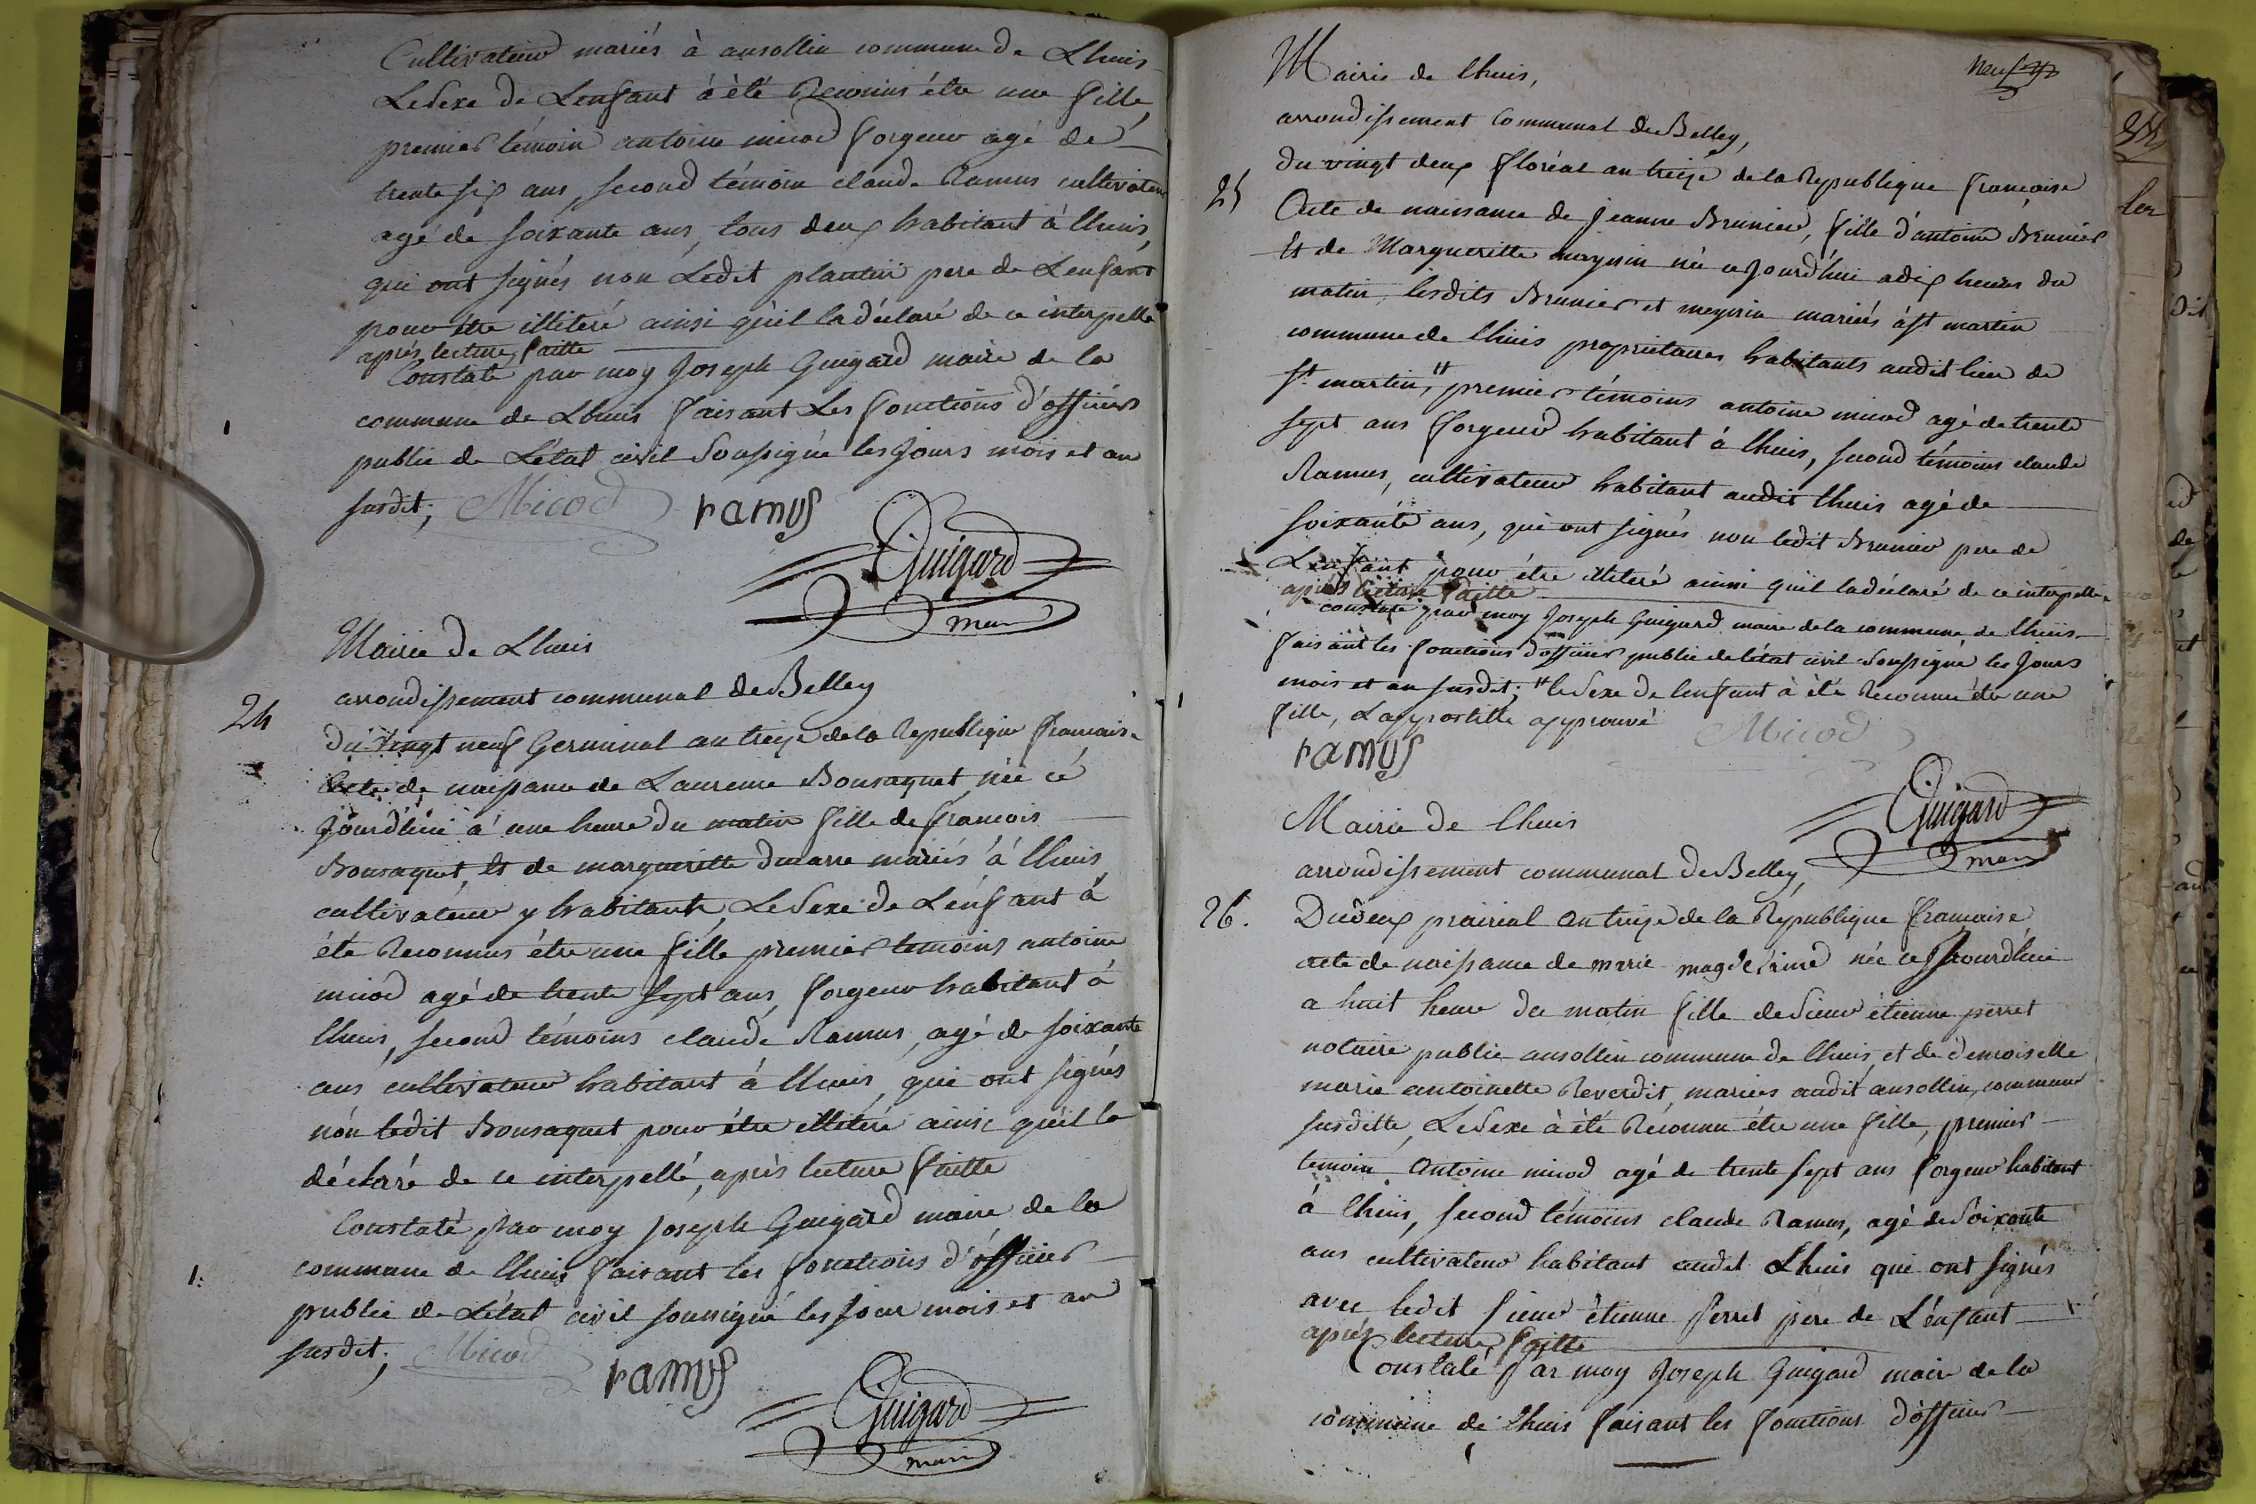 Cultivateur mariés à ansollin commune de Lhuis
Le Sexe de Lenfant à été Reconnu étre une fille,
premier témoin antoine micod forgeur agé de
trente six ans, second témoin claude Ramus cultivateur
agé de soixante ans, tous deux habitant à lhuis,
qui ont signés non Ledit plantin pere de Lenfant
pour étre illiteré ainsi quil la déclaré de ce interpellé
après lecture faitte
Constaté par moy Joseph Guigard maire de la
commune de Lhuis faisant Les fonctions d'officier
public de Létat civil Soussigné les Jours mois et an
susdit; Micod ramus
Guigard
maire
Mairie de Lhuis
arrondissement communal de Belley
24
Du vingt neuf Germinal an treize de la Republique francaise
Acte de naissance de Laurence Bonsaquet née cé
Jourdhui à une heure du matin fille de francois
Bonsaquet, et de margueritte ducarre mariés à lhuis
cultivateur y habitants, Le Sexe de Lenfant à
été Reconnus étre une fille premier temoins antoine
micod agé de trente sept ans, forgeur habitant à
lhuis, second témoins claude Ramus, agé de soixante
ans cultivateur habitant à lhuis, qui ont signés
nón ledit Bonsaquet pour étre illiteré ainsi quil la
déclaré de ce interpellé, après lecture faitte
Constaté par moy Joseph Guigard maire de la
commune de lhuis faisant les fonctions d'officier
1.
public de Létat civil soussigné les jour mois et an
susdit; Micod
ramus
Guigard
maire
neuf
Mairie de lhuis,
arrondissement Communal de Belley,
du vingt deux floréal an treize de la Republique francaise
25
Acte de naissance de jeanne Brunier, fille d'antoine Brunier
Et de Margueritte meynin né ce jourdhui à dix heures du
matin, lesdits Brunier et meynin mariés à st martin
commune de lhuis propriétaires habitants audit lieu de
st martin, # premier témoins antoine micod agé de trente
sept ans forgeur habitant à lhuis, second témoins claude
Ramus, cultivateur habitant audit lhuis agé de
soixante ans, qui ont signés non ledit Brunier pere de
Lenfant pour étre illiteré ainsi quil la déclaré de ce interpellé
après lecture faitte
constaté par moy Joseph Guigard maire de la commune de lhuis
faisant les fonctions d'officier public de létat civil Soussigné les Jours
mois et an susdit; # le Sexe de lenfant à été Reconnu étre une
fille, Lappostille approuvé Micod
ramus
Guigard
maire
Mairie de lhuis
arrondissement communal de Belley,
26.
Du deux prairial an treize de la République francaise
acte de naissance de marie magdelaine née ce Jourdhui
a huit heure du matin fille de Sieur étienne perret
notaire public ansollin commune de lhuis et de demoiselle
marie antoinette Reverdit, mariés audit ansollin, commune
susditte, Le Sexe à été Réconnu étre une fille, premier
temoin Antoine micod agé de trente sept ans forgeur habitant
à lhuis, second témoins claude Ramus, agé de Soixante
ans cultivateur habitant audit Lhuis qui ont signés
avec ledit sieur étienne Perret pere de Lénfant
après lecture faitte
Constaté Par moy Joseph Guigard maire de la
commune de lhuis faisant les fonctions dofficier